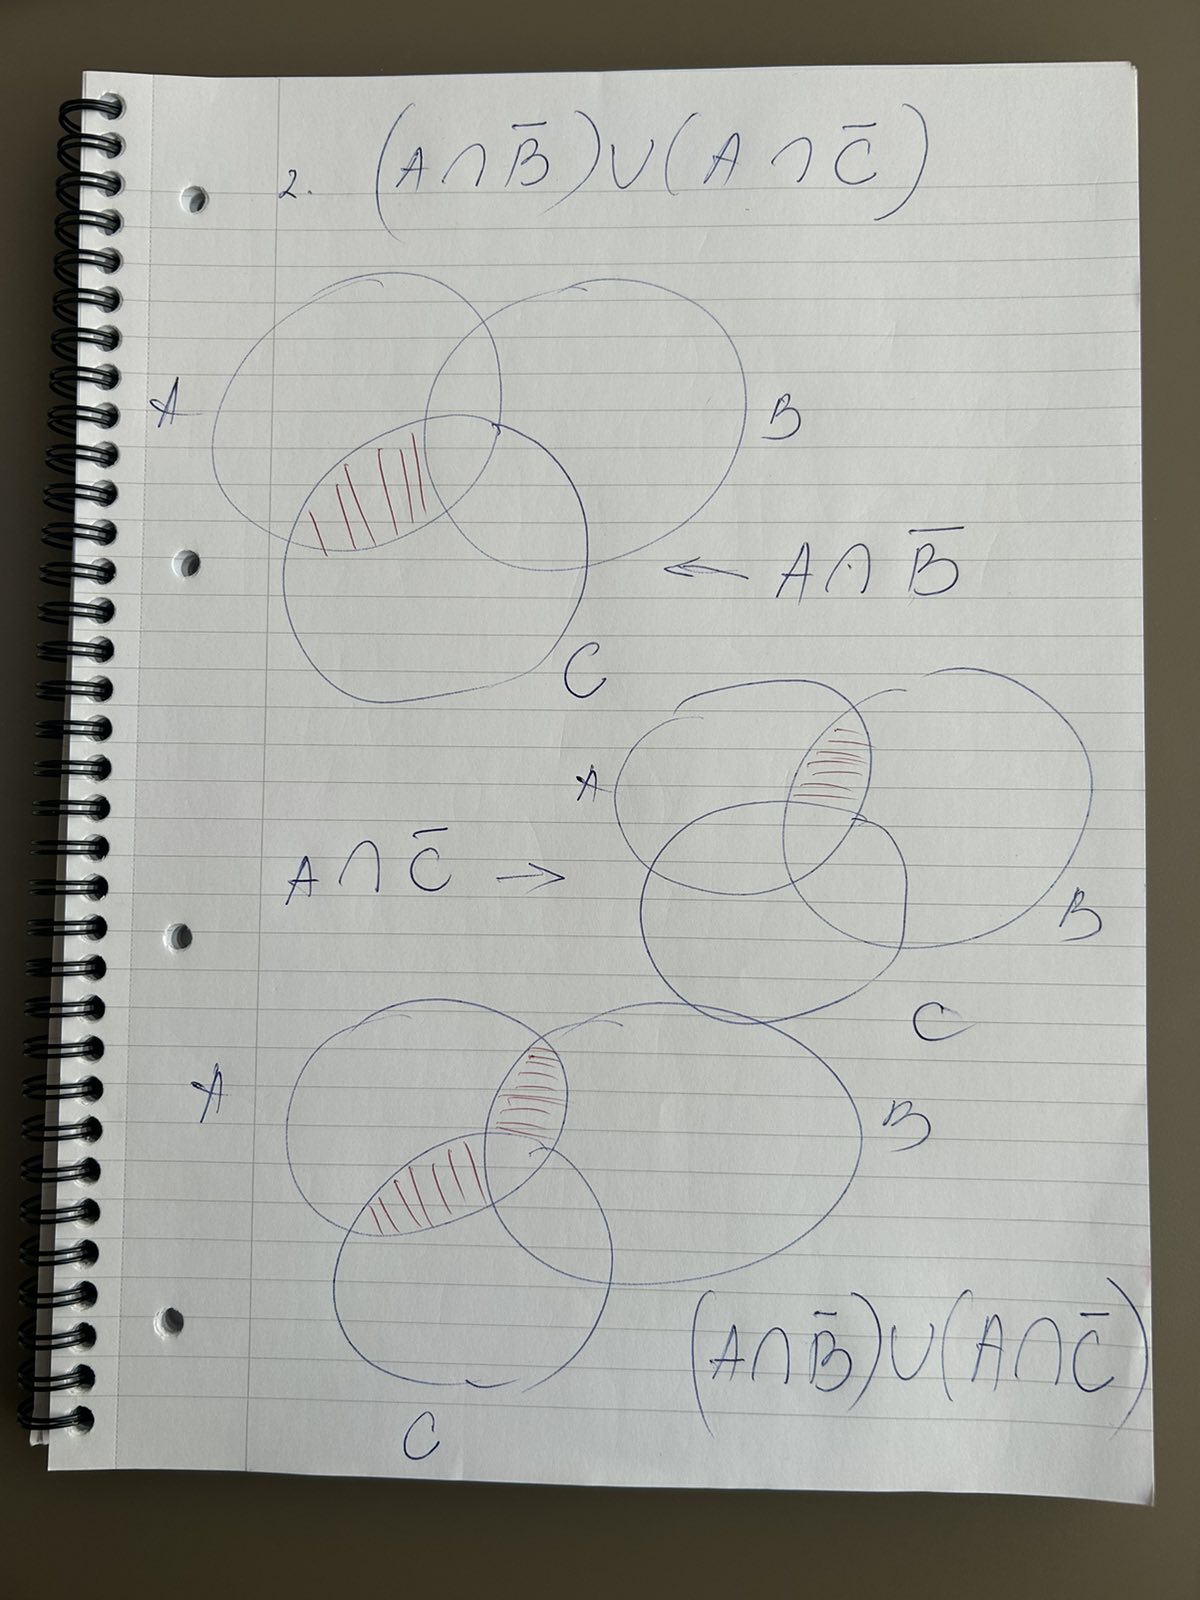 2. (A ∩ B̅) ∪ (A ∩ C̅)
A
B
← A ∩ B̅
C
A
A ∩ C̅ →
B
C
A
B
(A ∩ B̅) ∪ (A ∩ C̅)
C